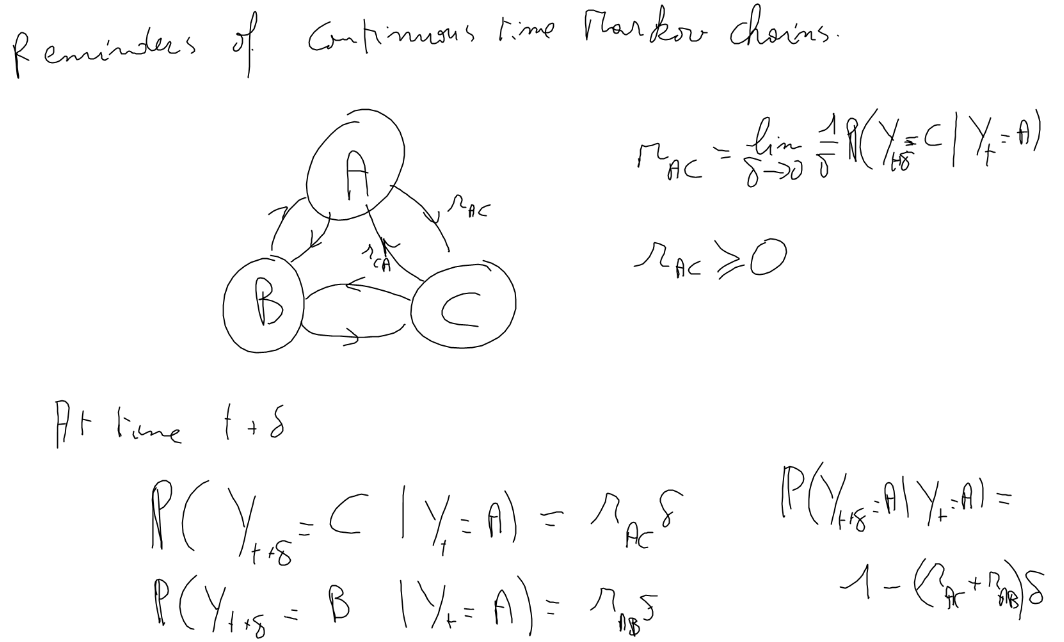 Reminders of Continuous time Markov chains.
A
r_AC
r_CA
B
C
r_AC = lim_{δ→0} 1/δ ℙ(Y_{t+δ} = C | Y_t = A)
r_AC ⩾ 0
At time t+δ
ℙ(Y_{t+δ} = C | Y_t = A) = r_AC δ
ℙ(Y_{t+δ} = B | Y_t = A) = r_AB δ
ℙ(Y_{t+δ} = A | Y_t = A) =
1 - (r_AC + r_AB)δ